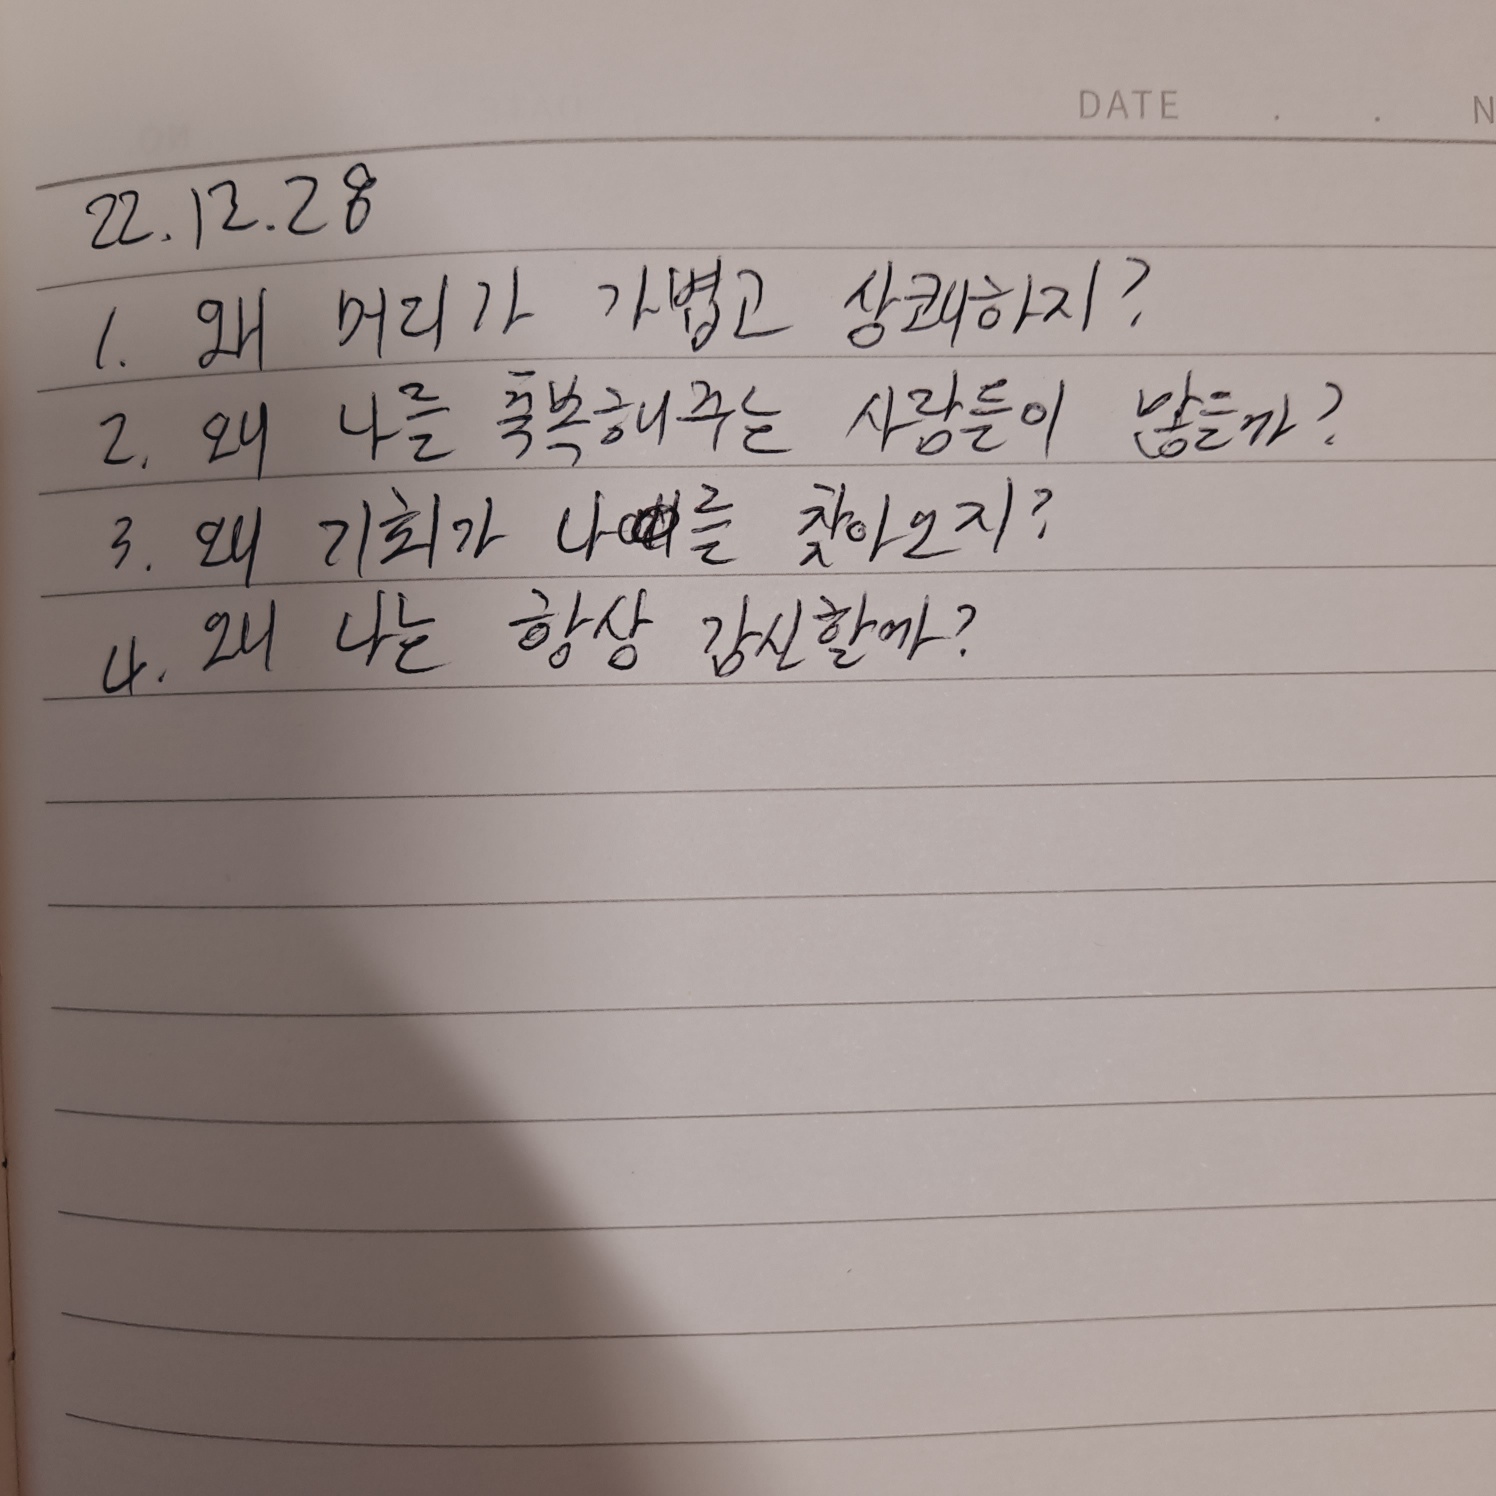 DATE . . N
22.12.28
1. 왜 머리가 가볍고 상쾌하지?
2. 왜 나를 축복해주는 사람들이 많은까?
3. 왜 기회가 나를 찾아오지?
4. 왜 나는 항상 감신할까?